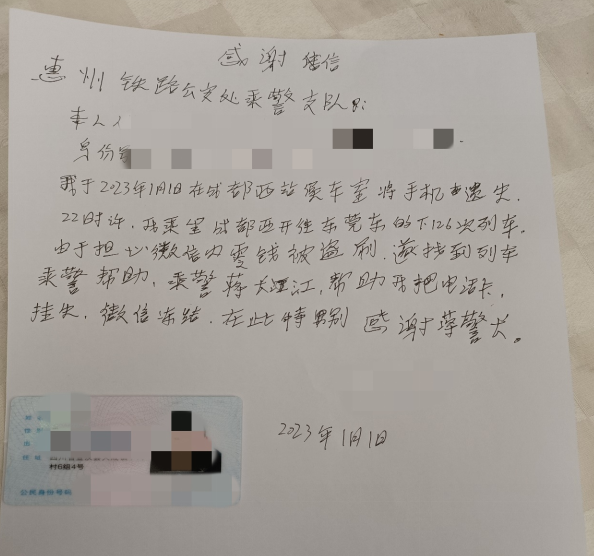 感谢信
惠州铁路公安处乘警支队:
本人
身份
我于2023年1月1日在成都西站候车室将手机遗失.
22时许.我乘坐成都西开往东莞东的T126次列车.
由于担心微信内零钱被盗刷.遂找到列车
乘警帮助.乘警蒋大江,帮助我把电话卡,
挂失.微信冻结.在此特别感谢蒋警长。
2023年1月1日
村6组4号
公民身份号码